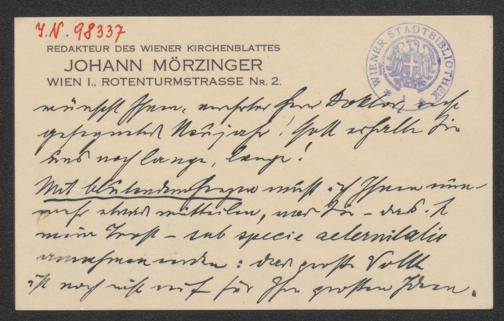 J.N. 98337
REDAKTEUR DES WIENER KIRCHENBLATTES
JOHANN MÖRZINGER
WIEN I., ROTENTURMSTRASSE NR. 2.
WIENER STADTBIBLIOTHEK
wünscht Ihnen, verehrter Herr Doktor, recht
gesegnetes Neujahr! Gott erhalte Sie
uns noch lange, lange!
Mit blutendem Herzen muß ich Ihnen nun-
mehr etwas mitteilen, was Sie – das ist
mein Trost – sub specie aeternitatis
annehmen werden: das große Volk
ist noch nicht reif für Ihre großen Ideen.